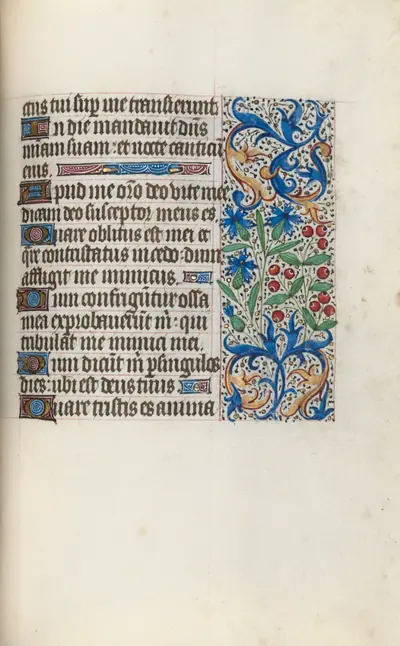 ctus tui sup me transierunt
In die mandauit dns
miam suam : et nocte canticu
eius.
Apud me oro deo vite mee
dicam deo susceptor meus es
Quare oblitus est mei et
qre contristatus incedo : dum
affligit me inimicus.
Dum confringutur ossa
mea exprobauerut m : qui
tribulat me inimici mei.
Dum dicut m p singulos
dies : ubi est deus tuus.
Quare tristis es anima